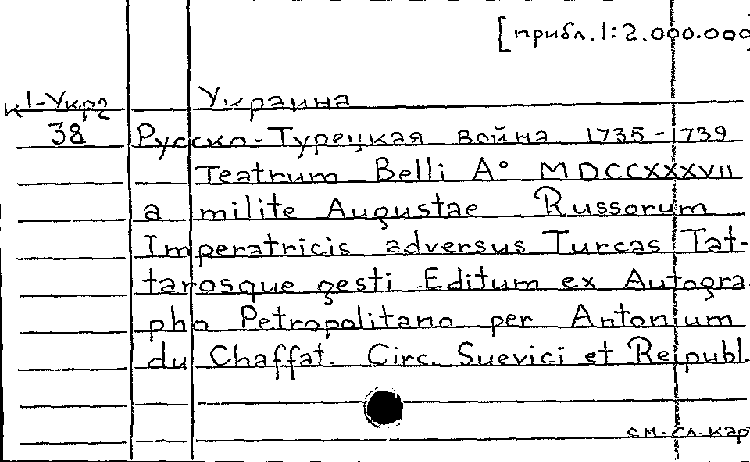 [прибл. 1:2.000.000
К1-Укр2 Украина
38 Русско-Турецкая война 1735-1739
Teatrum Belli A° MDCCXXXVII
a milite Augustae Russorum
Imperatricis adversus Turcas Tat-
tarosque gesti Editum ex Autogra
pho Petropolitano per Antonium
du Chaffat. Circ. Suevici et Reipubl.
см. сл. кар